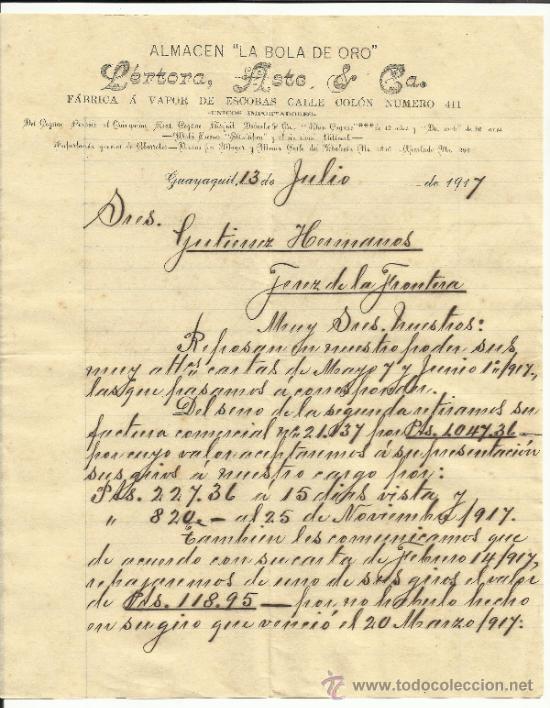 ALMACEN "LA BOLA DE ORO"
Lértora, Asto, & Ca.
FÁBRICA Á VAPOR DE ESCOBAS CALLE COLÓN NUMERO 411
UNICOS IMPORTADORES
Del Cognac
Guayaquil, 13 de Julio de 1917
Sres.
Gutierrez Hermanos
Jerez de la Frontera
Muy Sres. Nuestros:
Reposan en nuestro poder sus
muy attas cartas de Mayo 7 y Junio 1º/917,
las que pasamos á corresponder.
Del seno de la segunda retiramos su
factura comercial nº 21.137 por Pts. 1.047.36—
por cuyo valor aceptaremos á su presentación
sus giros á nuestro cargo por:
Pts. 227.36 a 15 dias vista y
" 820.— al 25 de Noviembre/917.
También les comunicamos que
de acuerdo con su carta de Febrero 14/917,
rebajaremos de uno de sus giros el valor
de Pts. 118.95— por no haberlo hecho
en su giro que venció el 20 Marzo/917.
todocoleccion
www.todocoleccion.net